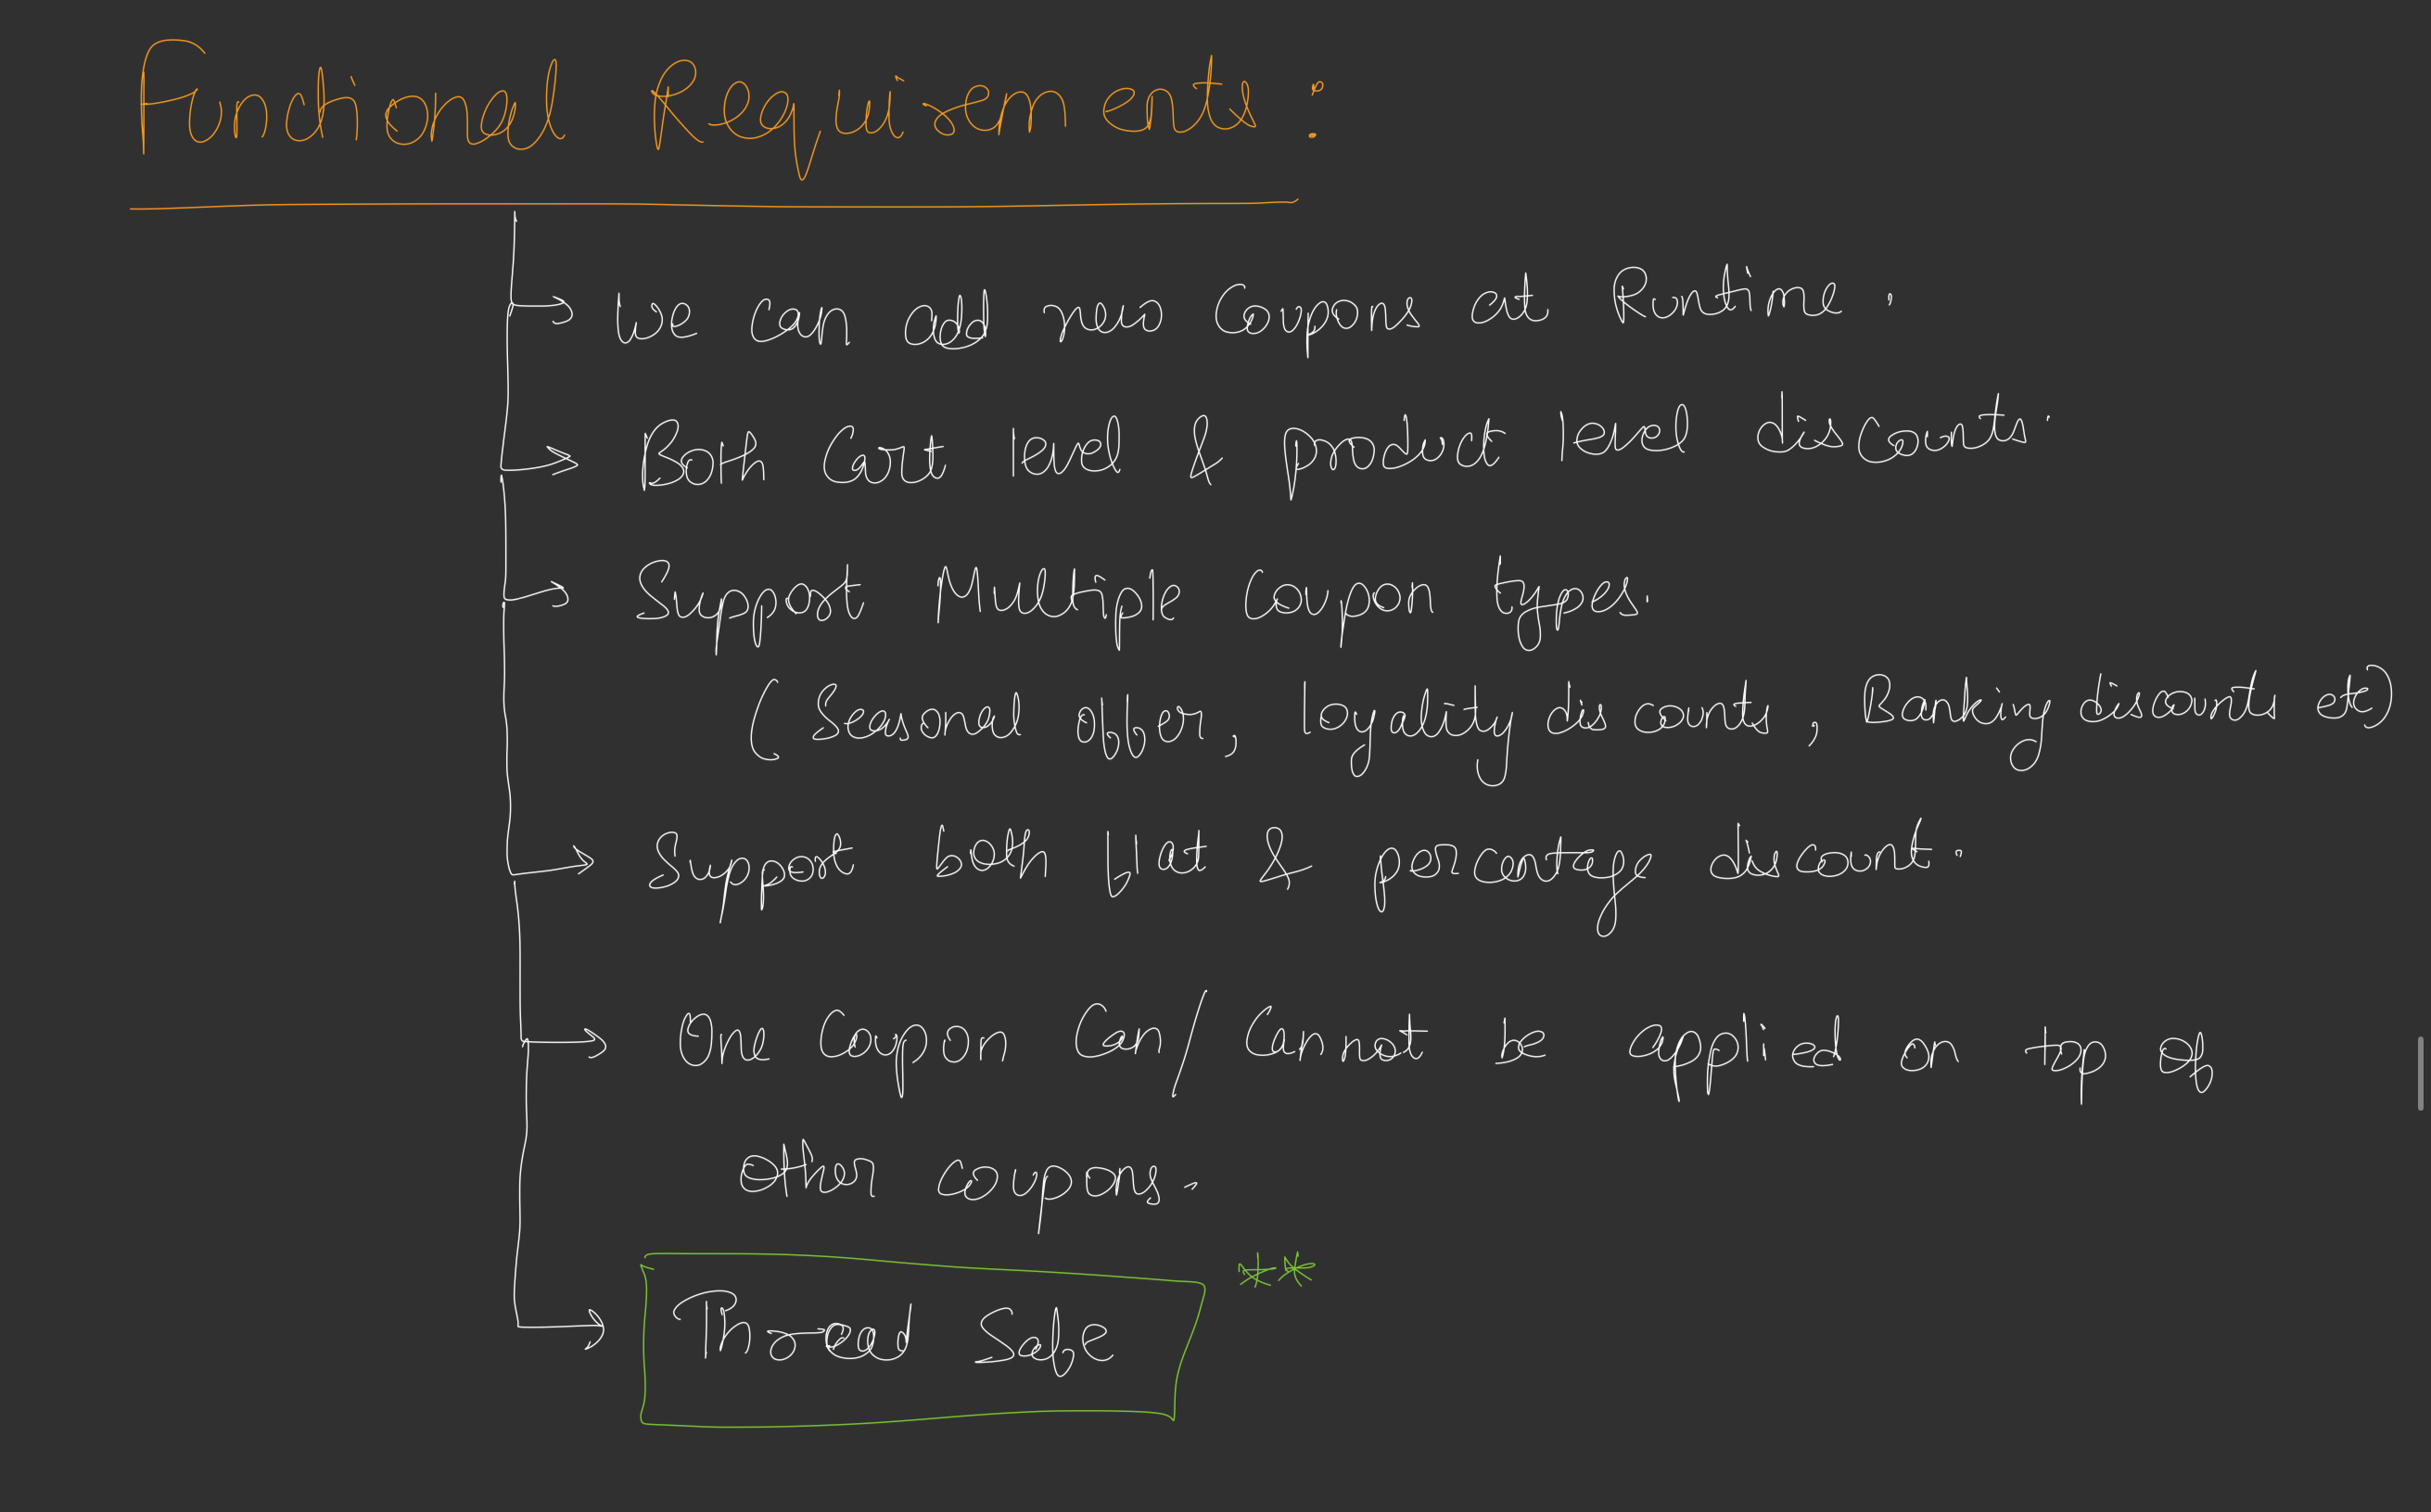 Functional Requirements :
We can add new Coupons at Runtime.
Both Cart level & product level discounts.
Support Multiple Coupon types.
( Seasonal offer, loyality discounts, Banking discounts etc)
Support both flat & percentage discount.
One Coupon Can/Cannot be applied on top of
other coupons.
Thread Safe **